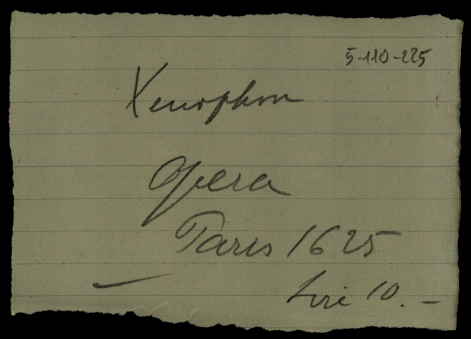 5-110-225
Xenophon
Opera
Paris 1625
Lire 10.-